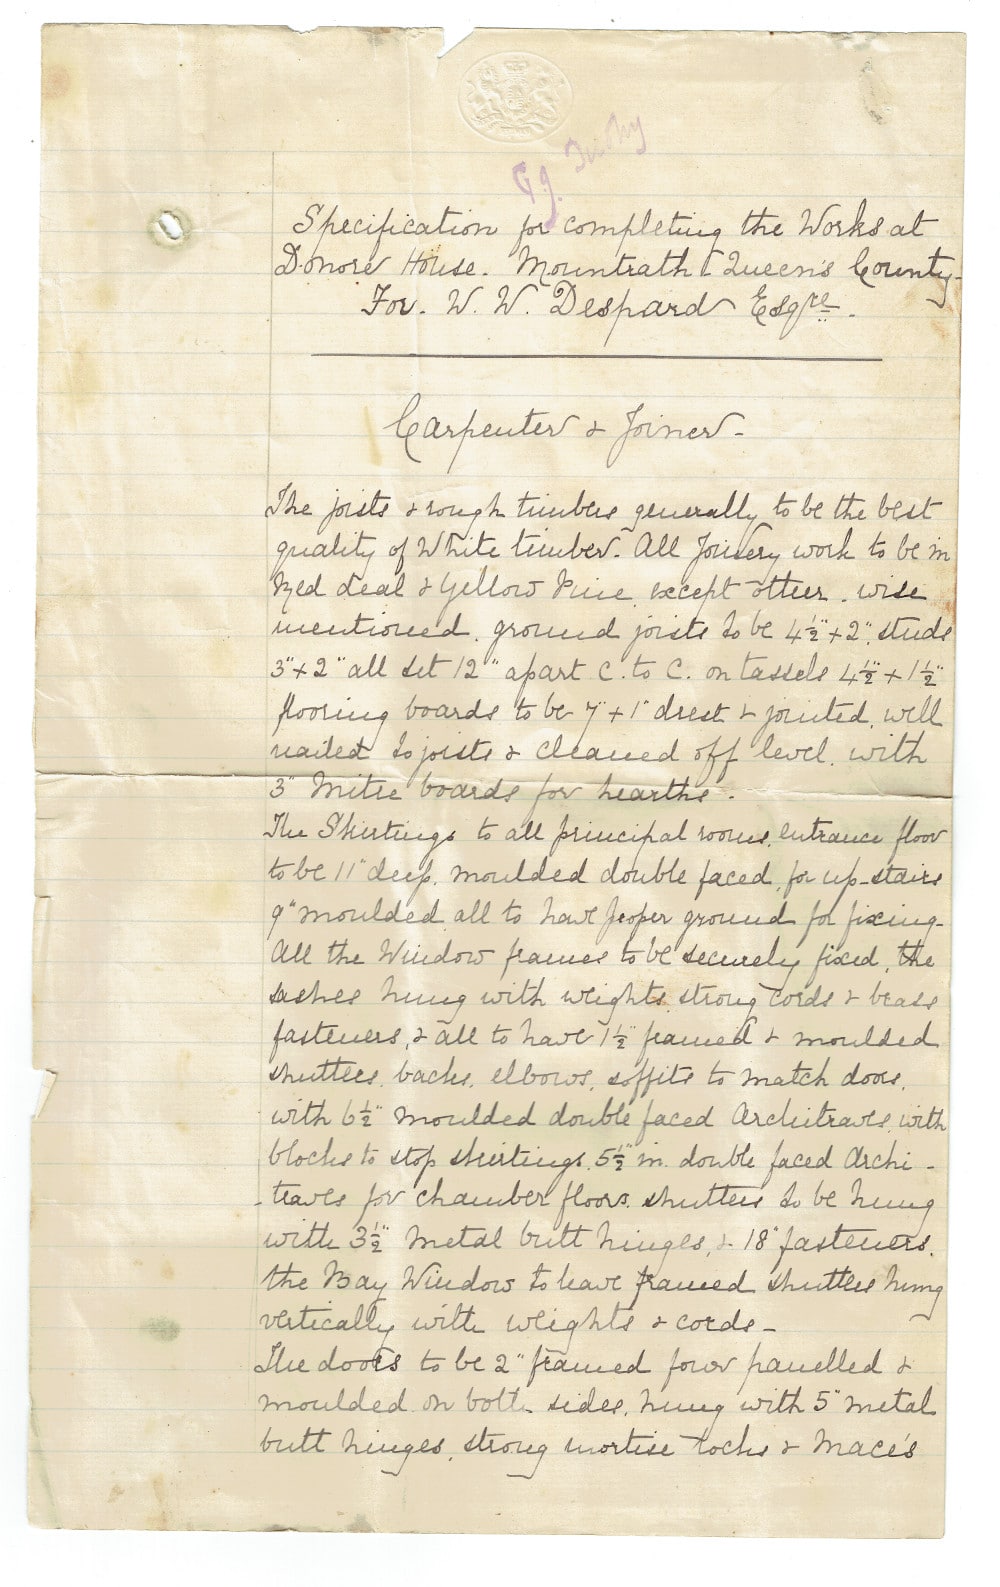 Specification for completing the Works at
Donore House. Mountrath Queen's County-
For. W. W. Despard Esqre.
Carpenter & Joiner-
The joists & rough timbers generally to be the best
quality of White timber. All Joinery work to be in
Red deal & Yellow Pine, except other-wise
mentioned. ground joists to be 4½"+2", studs
3"+2" all set 12" apart C. to C. on tassels 4½"+1½"
flooring boards to be 7"+1" drest & jointed, well
nailed to joists & cleaned off level. with
3" Mitre boards for hearths-
The Skirtings to all principal rooms, entrance floor
to be 11" deep, moulded double faced, for up-stairs
9" moulded, all to have proper ground for fixing-
All the Window frames to be securely fixed, the
sashes hung with weights, strong cords & brass
fasteners, & all to have 1½" framed & moulded
shutters, backs, elbows, soffits to match doors,
with 6½" moulded double faced Architraves, with
blocks to stop skirtings, 5½" in double faced Archi-
-traves for chamber floors. shutters to be hung
with 3½" metal butt hinges, & 18" fasteners.
the Bay Window to have framed shutters hung
vertically with weights & cords-
The doors to be 2" framed four panelled &
moulded on both sides, hung with 5" metal
butt hinges, strong mortise locks & Mace's